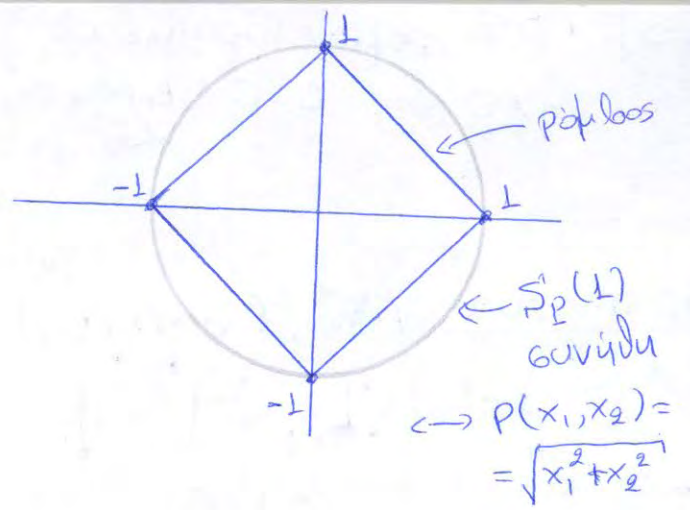 1
ρόμβος
-1
1
S_ρ(1)
συνήθη
-1
↔ ρ(x₁,x₂)=
=√x₁²+x₂²